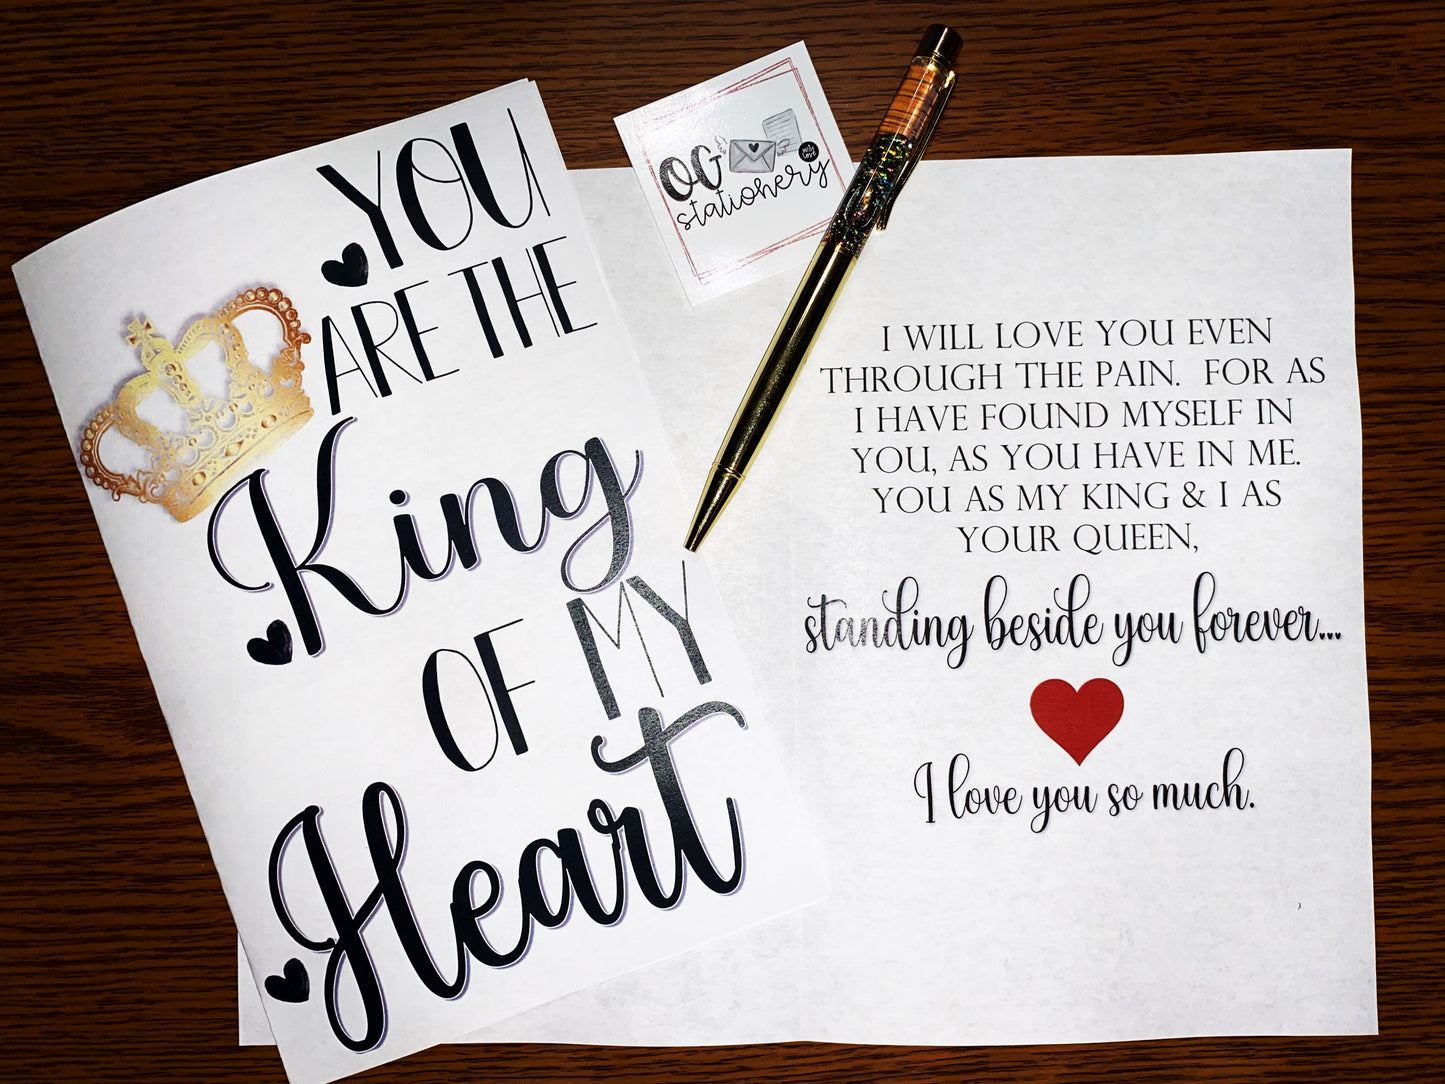 YOU
ARE THE
King
OF MY
Heart
OG
stationery
with
love
I WILL LOVE YOU EVEN
THROUGH THE PAIN. FOR AS
I HAVE FOUND MYSELF IN
YOU, AS YOU HAVE IN ME.
YOU AS MY KING & I AS
YOUR QUEEN,
standing beside you forever...
I love you so much.